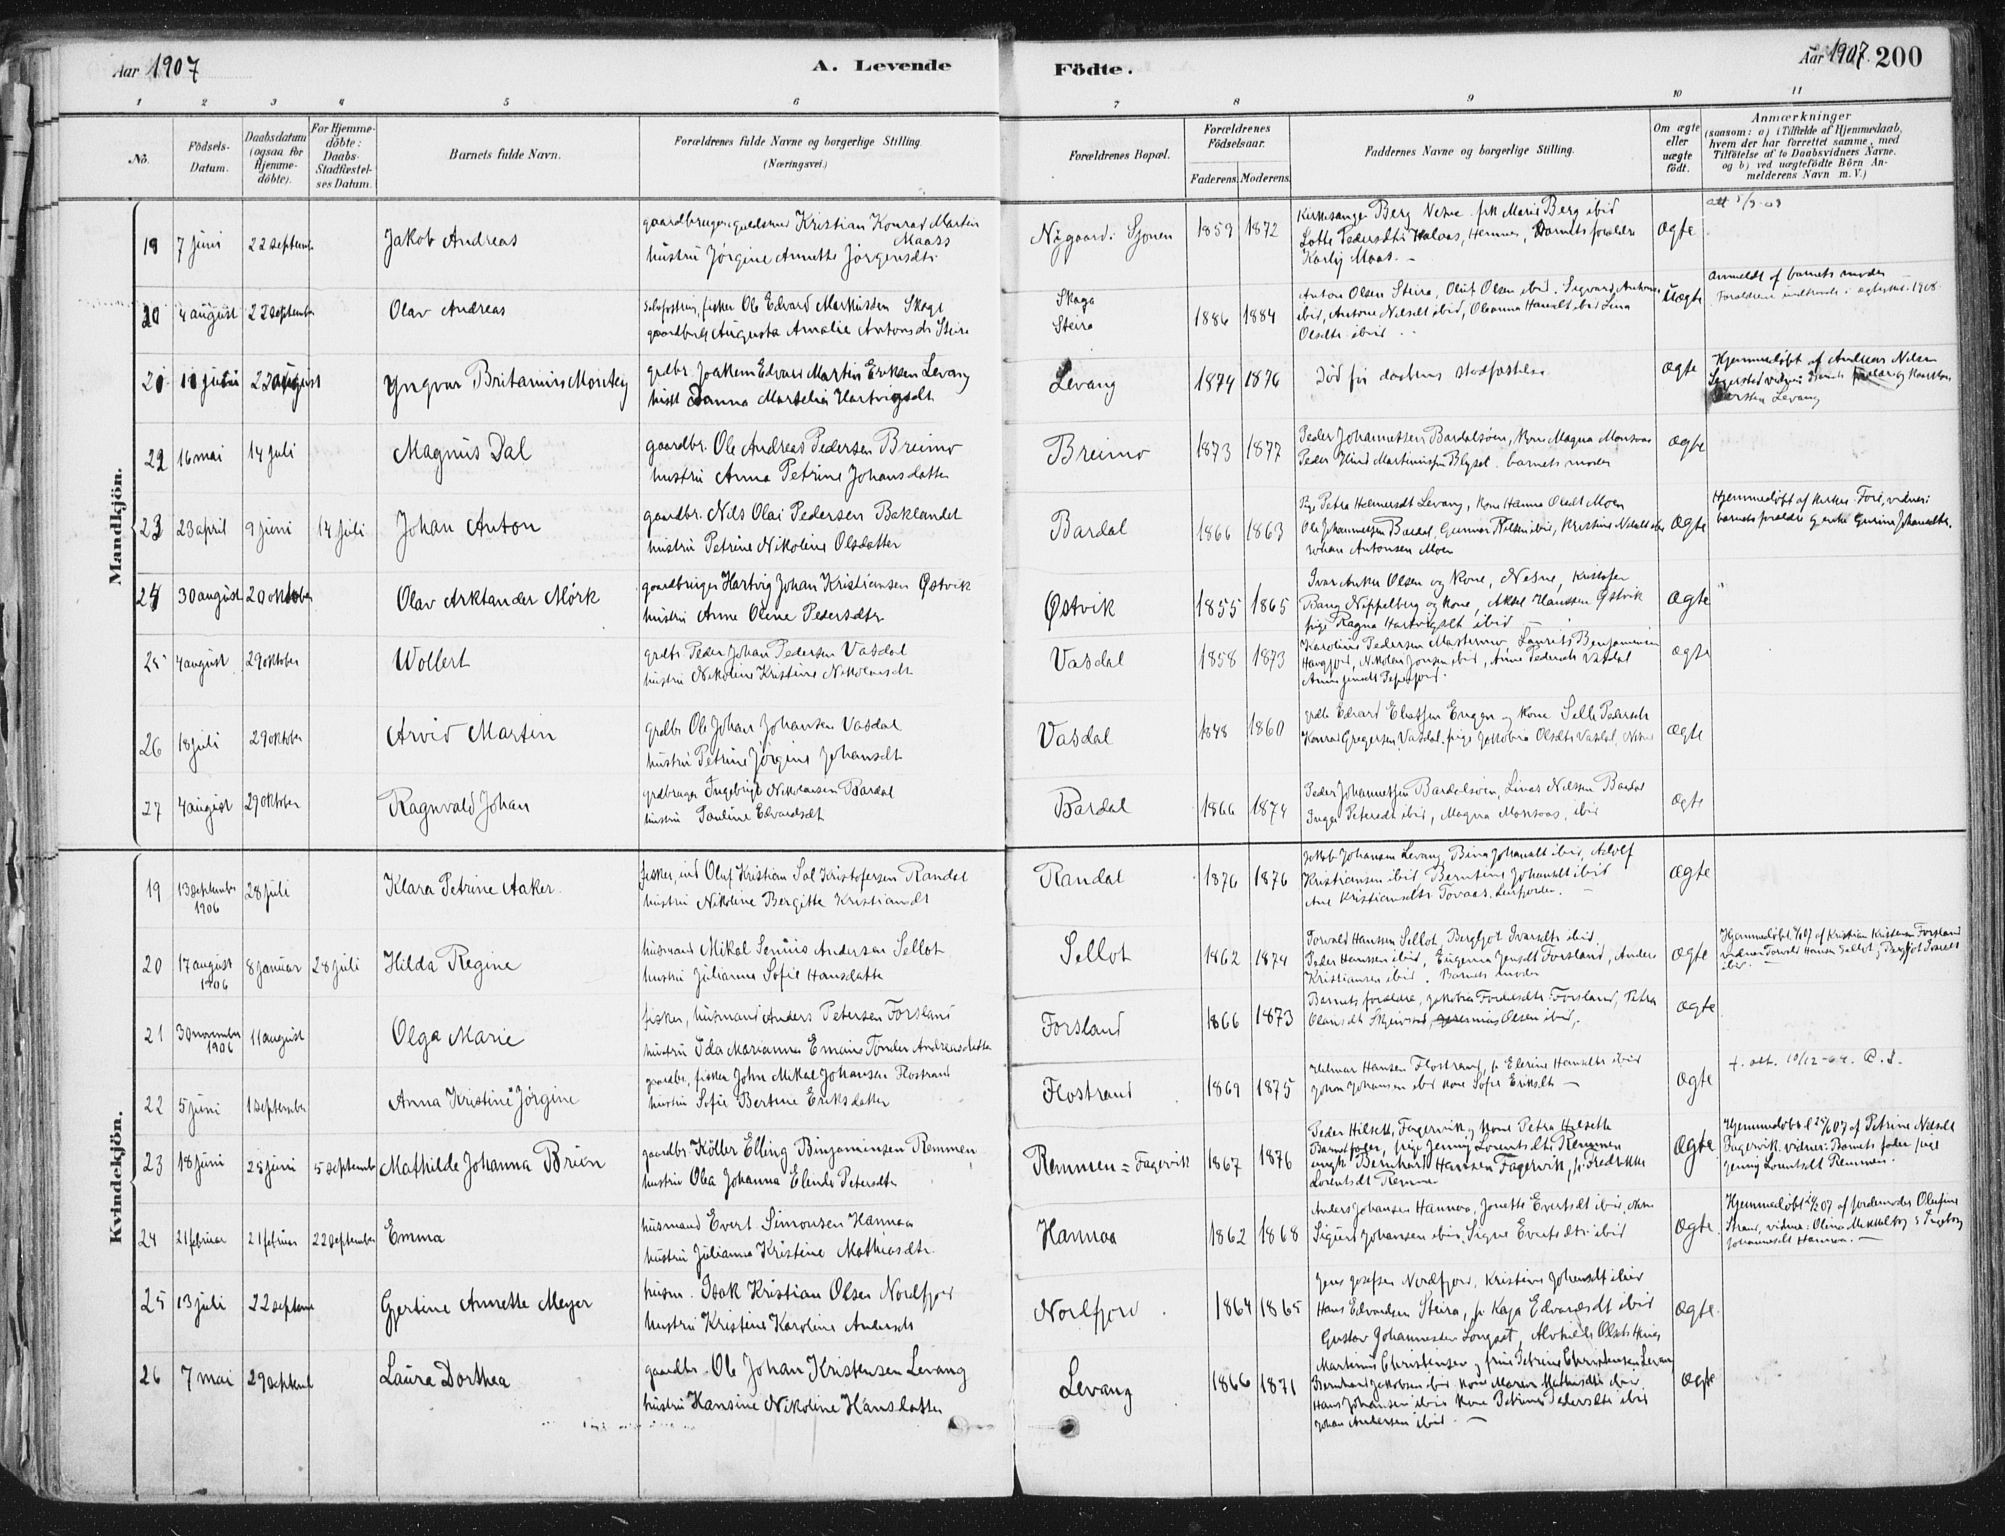 Aar 1907
A. Levende
Födte.
Aar 1907. 200
1 2 3 4 5 6 7 8 9 10 11
No.
Födsels-
Datum.
Daabsdatum
(ogsaa for
Hjemme-
döbte).
For Hjemme-
döbte:
Daabs-
Stadfæstel-
ses Datum.
Barnets fulde Navn.
Forældrenes fulde Navne og borgerlige Stilling
(Næringsvei.)
Forældrenes Bopæl.
Forældrenes
Födselsaar.
Faderens. Moderens.
Faddernes Navne og borgerlige Stilling.
Om ægte
eller
uægte
födt.
Anmærkninger
(saasom: a) i Tilfælde af Hjemmedaab,
hvem der har forrettet samme, med
Tilföielse af to Daabsvidners Navne.
og b) ved uægtefödte Börn An-
melderens Navn m. V.)
Mandkjön.
19 7 juni 22 septembr Jakob Andreas
Kristian Konrad Martin
Maass
hustru Jørgine Annette Jørgensdtr
Nygaard i Sjonen 1859 1872
Kirkesanger Berg Nesne frk Marie Berg ibid
Lotte Pedersdtr Halaas, Hemnes, Barnets forældre
Karly Maas. –
ægte
20 4 august 22 september Olav Andreas
fisker Ole Edvard Markussen Skaga
Augusta Amalie Antonsdtr Steiro
Skaga
Steiro
1886 1884
Anton Olsen Steiro, Oluf Olsen ibid. Sigvard Antonsen
ibid, Antone Nilsdt ibid, Oleanna Hansdt ibid Lina
Olsdtr ibid
uægte
anmeldt af barnets moder
21 11 juli 22 august Yngvar Britanius Montey
grdbr. Joakim Edvard Martin Eriksen Levang
hustr Danna Marselie Hartvigsdt
Levang 1874 1876
Død før daabens stadfæstelse
ægte
Hjemmedøbt af Andreas Nilsen
Levang
22 16 mai 14 juli Magnus Dal
gaardbr. Ole Andreas Pedersen Breimo
hustru Anna Petrine Johansdatter
Breimo 1873 1877
Peder Johannessen Bardalsøen, Kone Magna Monsaas
barnets moder
ægte
23 23 april 9 juni 14 juli Johan Anton
gaardbr. Nils Olai Pedersen Baklandet
hustru Petrine Nikoline Olsdatter
Bardal 1866 1863
Pige Petra Helmersdt Levang, Kone Hanna Olsdt Moen
Ole Johannessen Bardal, Gunnar Nilsen ibid, Kristine Nilsdt ibid
Johan Antonsen Moen
ægte
Hjemmedøbt af kirkes. Fore, vidner:
barnets forældre
24 30 august 20 oktober Olav Arktander Mörk
gaardbruger Hartvig Johan Kristiansen Østvik
hustru Anne Olene Pedersdtr
Østvik 1855 1865
Ivar Anker Olsen og Kone, Nesne, Kristofer
Bang Nippelberg og kone, Aksel Hanssen Østvik
pige Ragna Hartvigsdt ibid
ægte
25 4 august 29 oktober Wollert
grdbr Peder Johan Pedersen Vasdal
hustru Nikoline Kristine Nikolaisdt
Vasdal 1858 1873
Karoline Pedersen Mastermo, Laurits Benjaminsen
Haugfjord, Nikolai Jonsen ibid, Anne Pedersdt Vasdal
ægte
26 18 juli 29 oktober Arvid Martin
grdbr Ole Johan Johansen Vasdal
hustru Petrine Jørgine Johansdt
Vasdal 1848 1860
grdbr Edvard Eliassen Engen og Kone Selle Pedersdt
Konrad Gregersen Vasdal, pige Jakobia Olsdtr Vasdal, Nesne
ægte
27 4 august 29 oktober Ragnvald Johan
grdbruger Ingebrigt Nikolaisen Bardal
hustru Pauline Edvardsdt
Bardal 1866 1874
Peder Johannessen Bardalsøen, Linas Nilssen Bardal
Inger Petersdt ibid, Magna Monsaas, ibid
ægte
Kvindekjön.
19 13 september
1906
28 juli Klara Petrine Aaker.
fisker, ind Oluf Kristian Sal Kristofersen Randal
hustru Nikoline Bergitte Kristiansdt
Randal 1876 1876
Jakob Johansen Levang, Bina Johansdt ibid, Adolf
Kristiansen ibid, Berntine Johansdt ibid
Ane Kristiansdtr Tovaas, Leirfjorden. –
ægte
20 17 august
1906
8 januar 28 juli Hilda Regine
husmand Mikal Senius Andersen Sellot
hustru Julianna Sofie Hansdatter
Sellot 1862 1874
Torvald Hansen Sellot, Bergljot Ivarsdtr ibid
Peder Hanssen ibid, Eugenia Jensdt Forsland, Anders
Kristiansen ibid. Barnets moder
ægte
Hjemmedøbt 8/1 07 af Kristian Kristensen Forsland
vidner: Torvald Hansen Sellot, Bergljot Ivarsdt
ibid. –
21 30 november
1906
11 august Olga Marie
fisker, husmand Anders Petersen Forsland
hustru Ida Marianna Emaus Tonder Andreasdatter
Forsland 1866 1873
Barnets forældre, Jakobia Fordelsdtr Forsland, Petra
Olausdt Skjevsed, Jeremias Olsen ibid.
ægte
22 5 juni 1 september Anna Kristine Jörgine
gaardbr, fisker John Mikal Johansen Flostrand
hustru Sofie Bertine Eriksdatter
Flostrand 1869 1875
Hilmar Hansen Flostrand, p. Elerine Hansdtr ibid
Johan Johansen ibid kone Sofie Eriksdtr –
ægte
†. att. 10/12-64.
23 18 juni 25 juni 5 september Mathilde Johanna Brion
gaardbr Köller Elling Binjaminsen Remmen
hustru Olea Johanna Elende Petersdtr
Remmen = Fagervik 1867 1876
Peder Hilseth, Fagervik, Kone Petra Hilseth
Barnets fader, pige Jenny Lorentsdtr Remmen
ungk Bernhard Hansen Fagervik, p. Fredrikke
Lorentsdt Remmen
ægte
Hjemmedøbt 25/6 07 af Petrine Nilsdt
Fagervik, vidner: Barnets fader, pige
Jenny Lorentsdt Remmen.
24 21 februar 21 februar 22 september Emma
husmand Evert Simonsen Hannoa
hustru Julianna Kristine Mathiasdtr.
Hannoa 1862 1868
Anders Johansen Hannoa, Jonette Evertsdt ibid,
Sigurd Johansen ibid, Signe Evertsdtr ibid
ægte.
Hjemmedøbt 21/2 07 af jordemoder Olufine
Strand, vidner: Olina Mikkelborg & Ingeborg
Johannesdt Hannoa. –
25 13 juli 22 septembr Gjertine Annette Meyer
husm. Isak Kristian Olsen Nordfjord
hustru Kristine Karoline Andersdt
Nordfjord. 1864 1865
Jens Josefsen Nordfjord, Kristine Johansdt ibid
Hans Edvardsen Steiro, p. Kaja Edvardsdt ibid
Gustav Johannessen Longset,
ægte.
26 7 mai 29 septembr Laura Dorthea
gaardbr. Ole Johan Kristensen Levang
hustru Hansine Nikoline Hansdatter
Levang 1866 1871
Martinus Christensen og frue Petrine Christensen Levang
Bernhard Jakobsen ibid kone Maren Mathisdtr ibid,
Hans Johansen ibid kone Petrine Pedersdtr ibid
Johan Andersen ibid –
ægte